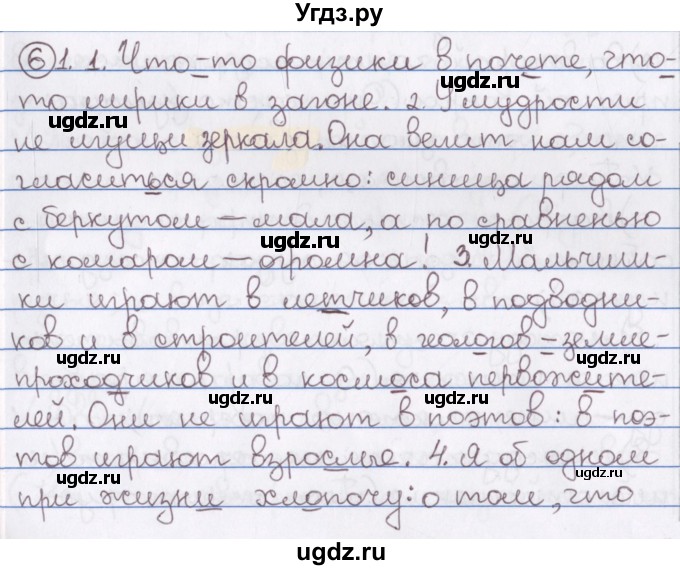 Угдз.ру
⑥ 1. 1. Что-то физики в почете, что-
то лирики в загоне. 2. У мудрости
не ищи зеркала. Она велит нам со-
гласиться скромно: синица рядом
с беркутом – мала, а по сравненью
с комаром – огромна! 3. Мальчиш-
ки играют в летчиков, в подводни-
ков и в строителей, в геологов-земле-
проходчиков и в космоса первожите-
лей. Они не играют в поэтов: в поэ-
тов играют взрослые. 4. Я об одном
при жизни хлопочу: о том, что
ugdz.ru
ugdz.ru
ugdz.ru
ugdz.ru
ugdz.ru
ugdz.ru
ugdz.ru
ugdz.ru
ugdz.ru
ugdz.ru
ugdz.ru
ugdz.ru
ugdz.ru
ugdz.ru